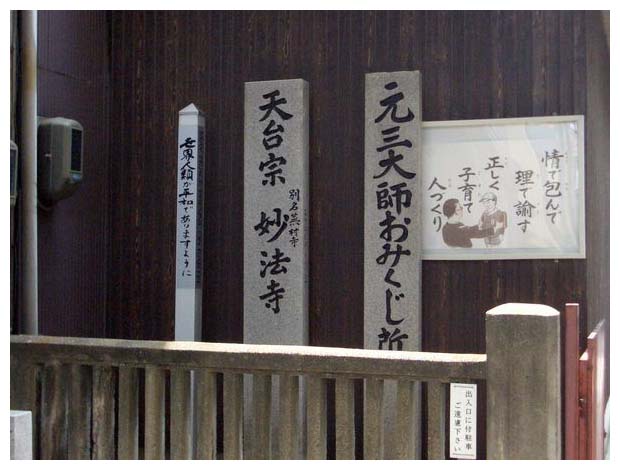 情で包んで
理で諭す
正しく
子育て
人づくり
元三大師おみくじ所
天台宗 妙法寺
別名蕪村寺
世界人類が平和でありますように
出入口に付駐車
ご遠慮下さい